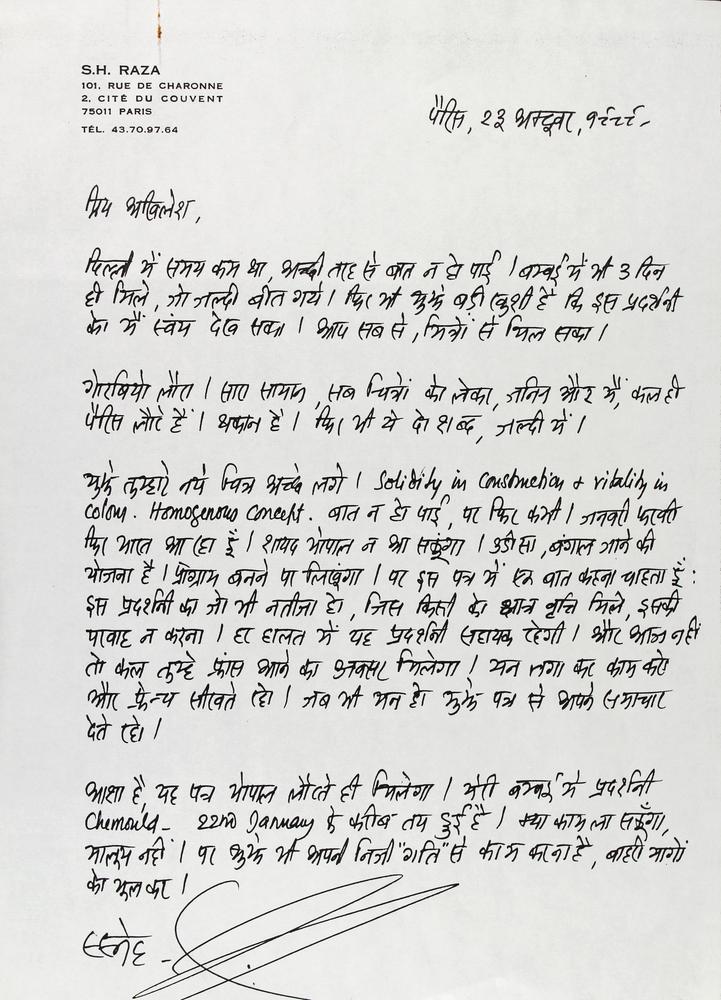 S.H. RAZA
101, RUE DE CHARONNE
2, CITÉ DU COUVENT
75011 PARIS
TÉL. 43.70.97.64
पैरिस, २३ अक्टूबर, १९८८ -
प्रिय अखिलेश,
दिल्ली में समय कम था, अच्छी तरह से बात न हो पाई । बम्बई में भी ३ दिन
ही मिले, जो जल्दी बीत गये । फिर भी मुझे बड़ी खुशी है कि इस प्रदर्शनी
को मैं स्वयं देख सका । आप सब से, मित्रों से मिल सका ।
गोरबियो लौटा । सारा सामान, सब चित्रों को लेकर, जनिन और मैं, कल ही
पैरिस लौटे हैं । थकान है । फिर भी ये दो शब्द, जल्दी में ।
मुझे तुम्हारे नये चित्र अच्छे लगे । Solidity in construction + vitality in
colour. Homogenous concept. बात न हो पाई, पर फिर कभी । जनवरी फरवरी
फिर भारत आ रहा हूँ । शायद भोपाल न आ सकूंगा । उड़ीसा, बंगाल जाने की
योजना है । प्रोग्राम बनने पर लिखूंगा । पर इस पत्र में एक बात कहना चाहता हूँ :
इस प्रदर्शनी का जो भी नतीजा हो, जिस किसी को छात्र वृत्ति मिले, इसकी
परवाह न करना । हर हालत में यह प्रदर्शनी सहायक रहेगी । और आज नहीं
तो कल तुम्हे फ्रांस आने का अवसर मिलेगा । मन लगा कर काम करो
और फ्रेन्च सीखते रहो । जब भी मन हो मुझे पत्र से अपने समाचार
देते रहो ।
आशा है, यह पत्र भोपाल लौटते ही मिलेगा । मेरी बम्बई में प्रदर्शनी
Chemould - 22nd January के करीब तय हुई है । क्या काम ला सकूँगा,
मालूम नहीं । पर मुझे भी अपनी निजी "गति" से काम करना है, बाहरी मांगों
को भूल कर ।
सस्नेह -